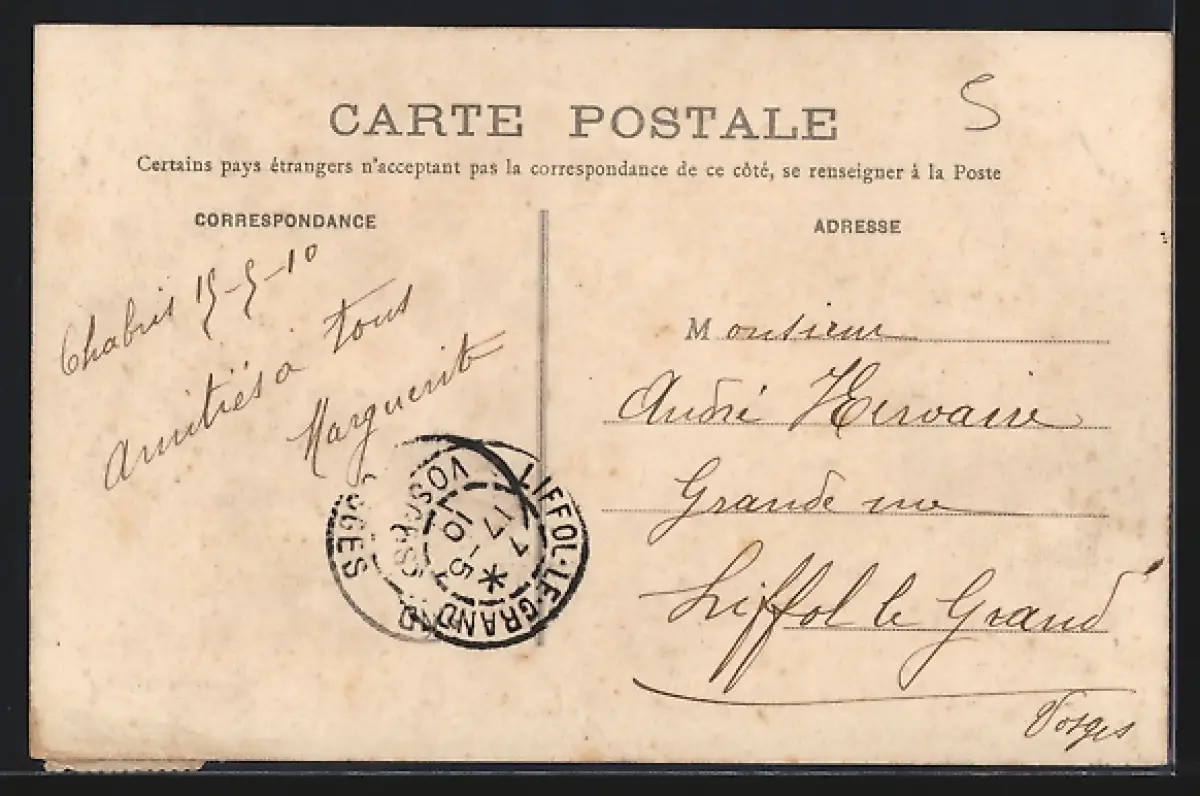 S
CARTE POSTALE
Certains pays étrangers n'acceptant pas la correspondance de ce côté, se renseigner à la Poste
CORRESPONDANCE
Chabris 15-5-10
Amitiés à tous
Marguerit
ADRESSE
Monsieur
André
Grande rue
Liffol le Grand
Vosges
LIFFOL-LE-GRAND
VOSGES
17-5
10
OSGES